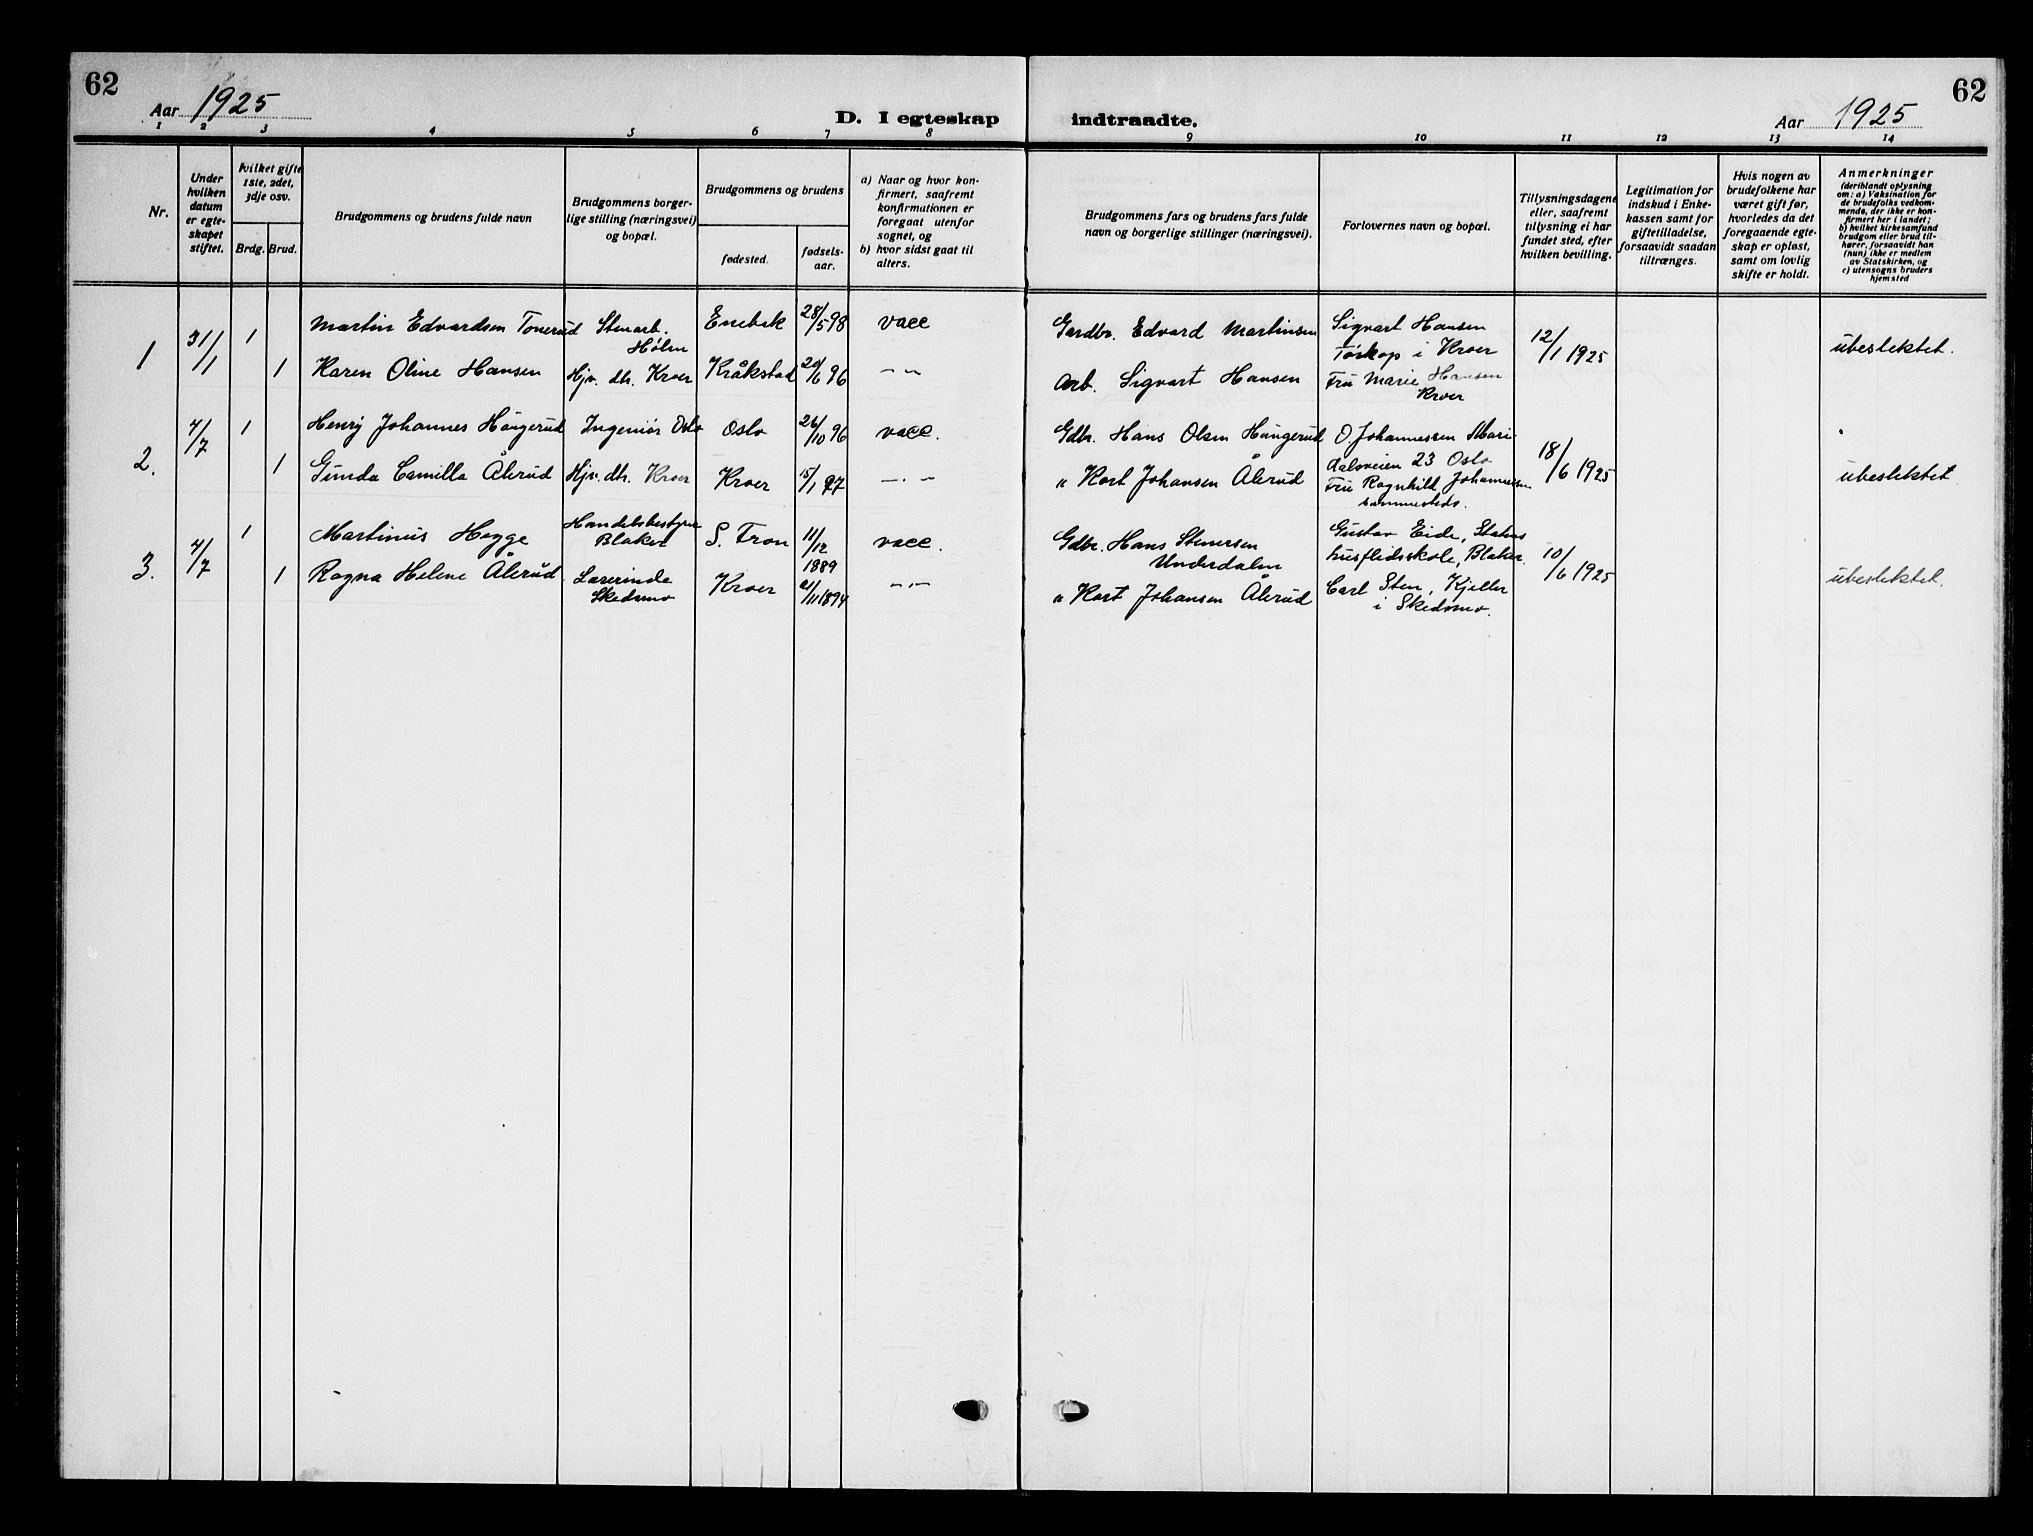 62
Aar 1925
D. I egteskap
indtraadte.
Aar 1925
62
1 2 3 4 5 6 7 8 9 10 11 12 13 14
Nr.
Under
hvilken
datum
er egte-
skapet
stiftet.
hvilket gifte
1ste, 2det,
3dje osv.
Brdg. Brud.
Brudgommens og brudens fulde navn
Brudgommens borger-
lige stilling (næringsvei)
og bopæl.
Brudgommens og brudens
fødested.
fødsels-
aar.
a) Naar og hvor kon-
firmert, saafremt
konfirmationen er
foregaat utenfor
sognet, og
b) hvor sidst gaat til
alters.
Brudgommens fars og brudens fars fulde
navn og borgerlige stillinger (næringsvei).
Forlovernes navn og bopæl.
Tillysningsdagene
eller, saafremt
tillysning ei har
fundet sted, efter
hvilken bevilling.
Legitimation for
indskud i Enke-
kassen samt for
giftetilladelse,
forsaavidt saadan
tiltrænges.
Hvis nogen av
brudefolkene har
været gift før,
hvorledes da det
foregaaende egte-
skap er opløst,
samt om lovlig
skifte er holdt.
Anmerkninger
(deriblandt oplysning
om: a) Vaksination for
de brudefolks vedkom-
mende, der ikke er kon-
firmert her i landet;
b) hvilket kirkesamfund
brudgom eller brud til-
hører, forsaavidt han
(hun) ikke er medlem
av Statskirken, og
c) utensogns bruders
hjemsted
1 31/1 1 Martin Edvardsen Tonerud Stenarb. Hølen Enebak 28/5 98 vacc Gardbr. Edvard Martinsen Sigvart Hansen
Torskop i Kroer 12/1 1925 ubeslektet.
1 Karen Oline Hansen Hjv. dtr. Kroer Kråkstad 20/6 96 –"– Arb. Sigvart Hansen Fru Marie Hansen
Kroer
2. 4/7 1 Henry Johannes Haugerud Ingeniør Oslo Oslo 26/10 96 vacc. Gdbr. Hans Olsen Haugerud O. Johannessen Mari-
dalsveien 23 Oslo 18/6 1925 ubeslektet
1 Gunda Camilla Åkrud Hjv. dtr. Kroer Kroer 15/1 97 –"– " Kart Johansen Åkrud Fru Ragnhild Johannessen
sammesteds.
3. 4/7 1 Martinus Hegge Handelsbestyrer
Blaker S. Fron 11/12
1889 vacc. Gdbr. Hans Stenersen
Underdalen Gustav Eide, Statens
husflidsskole, Blaker. 10/6 1925 ubeslektet.
1 Ragna Helene Åkrud Lærerinde
Skedsmo Kroer 21/11 1894 –"– " Kart Johansen Åkrud Carl Sten, Kjeller
i Skedsmo.